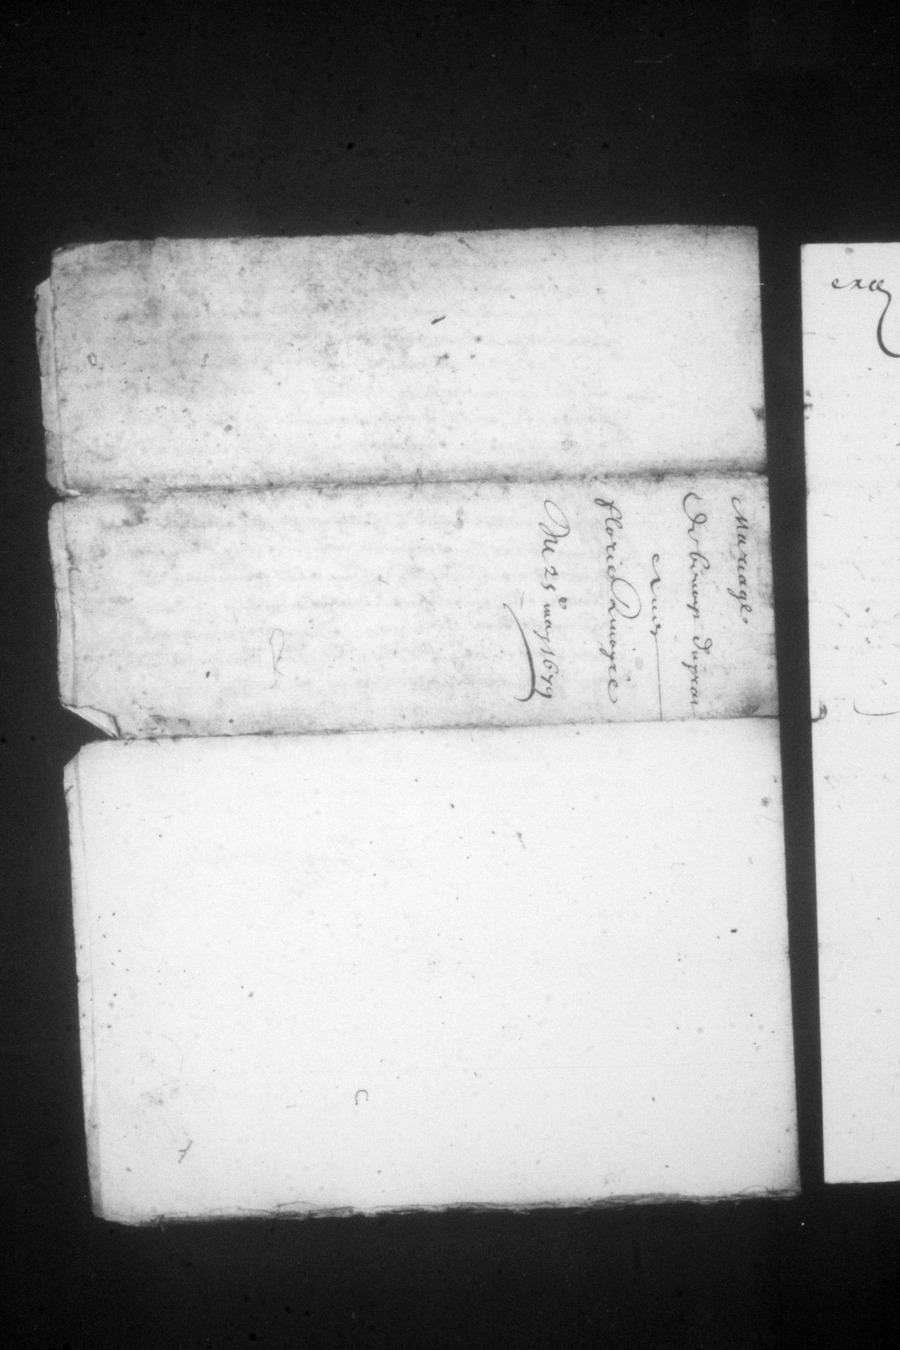 Mariage
De dupras
Avec
florie
Du 25e may 1679
exce